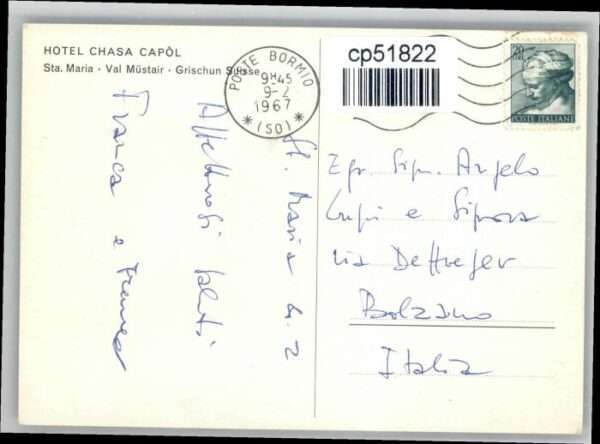 HOTEL CHASA CAPÒL
Sta. Maria - Val Müstair - Grischun Suisse
POSTE BORMIO
9H45
9-2
1967
* (SO) *
cp51822
20
POSTE ITALIANE
St. Maria 4.2
Affettuosi saluti
Franca e Franco
Egr. Sign. Angelo
Lupi e Signora
via Defregger
Bolzano
Italia